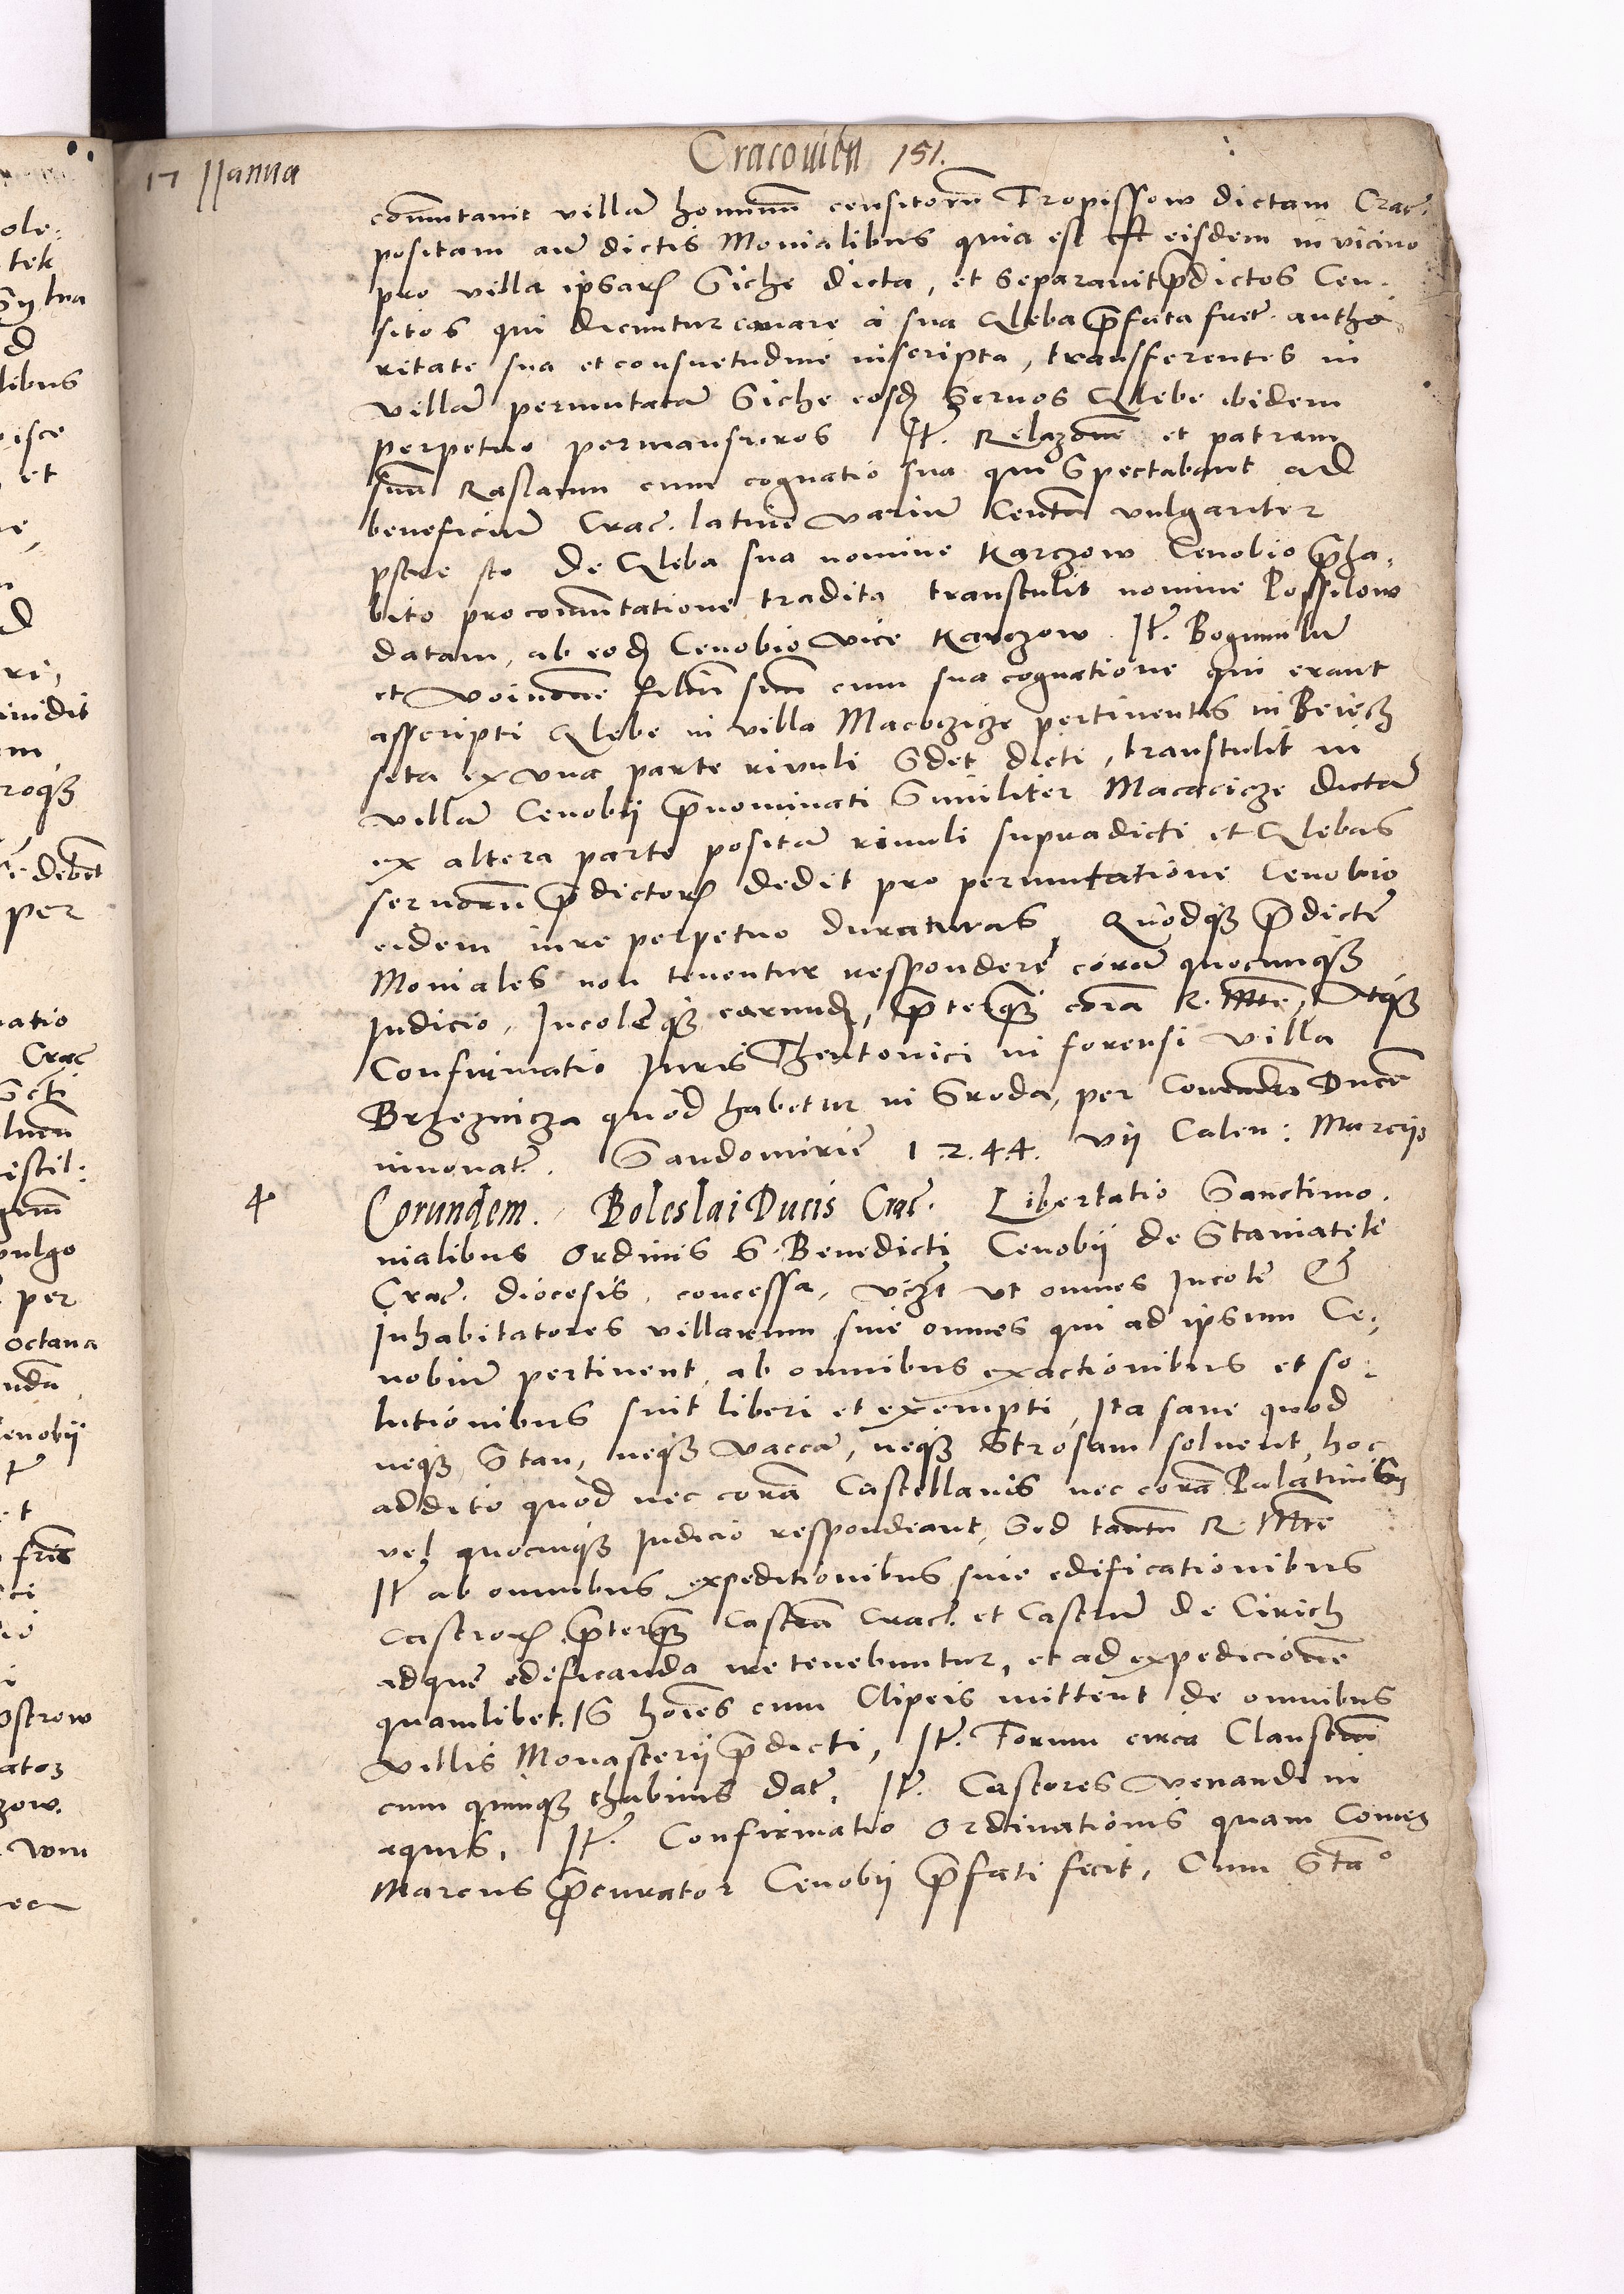 Cracouien 151.
17 IIanua
com̄utauit villā hominū censitorū Tropissow dictam Crac̄.
positam an̄ dictis Monialibus quia est est eisdem in vicino
pro villa ipsarꝝ Siche dicta, et separauit p̄dictos Cen-
sitos qui dicuntur canare a sua Gleba p̄fata fuer̄. autho
ritate sua et consuetudine inscripta, transferentes in
villā permutatā Siche eosđ seruos Glebe ibidem
perpetuo permansuros It̄. Relazonē et patrem
suū Raslaum cum cognatio sua qui spectabant ad
beneficiū Crac̄. latine variū Centū vulgariter
pstre sto De Gleba sua nomine Karczow Cenobio p̄ha,
bito pro com̄utatione tradita transtulit nomine Possilow
datam, ab eođ Cenobio vice Karczow. It̄. Bogumilū
et Voinonē filiū seū cum sua cognatione qui erant
asscripti Glebe in villa Macoczicze pertinentes in Beiech
sita ex vna parte riuuli Sdet dicti, transtulit in
villā Cenobij p̄nominati Similiter Macacicze dictā
ex altera parte positā riuuli supradicti et Glebas
seruorū p̄dictorꝝ dedit pro permutatione Cenobio
eidem iure perpetuo duraturas, Quodqꝫ p̄dictę
Moniales non tenentur respondere corā quocunqꝫ
Iudicio, Incolęqꝫ earunđ, p̄terqꝫ corā R. Mtē, Atqꝫ
Confirmatio Iuris Theutonici in forensi villa
Brzeznicza quod habetur in Sroda, per Conradū Ducē
innouat̄. Sandomirię 1.2.4.4. vij Calen: Marcij
4 Eorundem. Boleslai Ducis Crac̄. Libertatio Sanctimo.
nialibus Ordinis S. Benedicti Cenobij de Staniateke
Crac̄. diocesis, concessa, vcꝫt vt omnes Incolę &
Inhabitatores villarum siue omnes qui ad ipsum Ce-
nobiū pertinent, ab omnibus exactionibus et so-
lutionibus sint liberi et exempti, Ita sane quod
neqꝫ Stan, neqꝫ vaccā, neqꝫ Strosam soluent, hoc
addito quod nec corā Castellanis nec corā Palatinis
vel quocunqꝫ Iudicio respondeant, Sed tantū R. Mtē
It̄ ab omnibus expeditionibus siue edificationibus
castrorꝝ p̄terqꝫ Castrū Crac̄. et Castrū de Cirich
ad quę edificanda ire tenebuntur, et ad expedicionē
quamlibet. 16 hoīes cum Clipeis mittent de omnibus
villis Monasterij p̄dicti, It̄. Forum circa Claustrū
cum quinqꝫ thabinis dat̄. It̄. Castores venandi in
aquis, It̄. Confirmatio Ordinationis quam Comes
Marcus p̄curator Cenobij p̄fati fecit, Cum Sta°